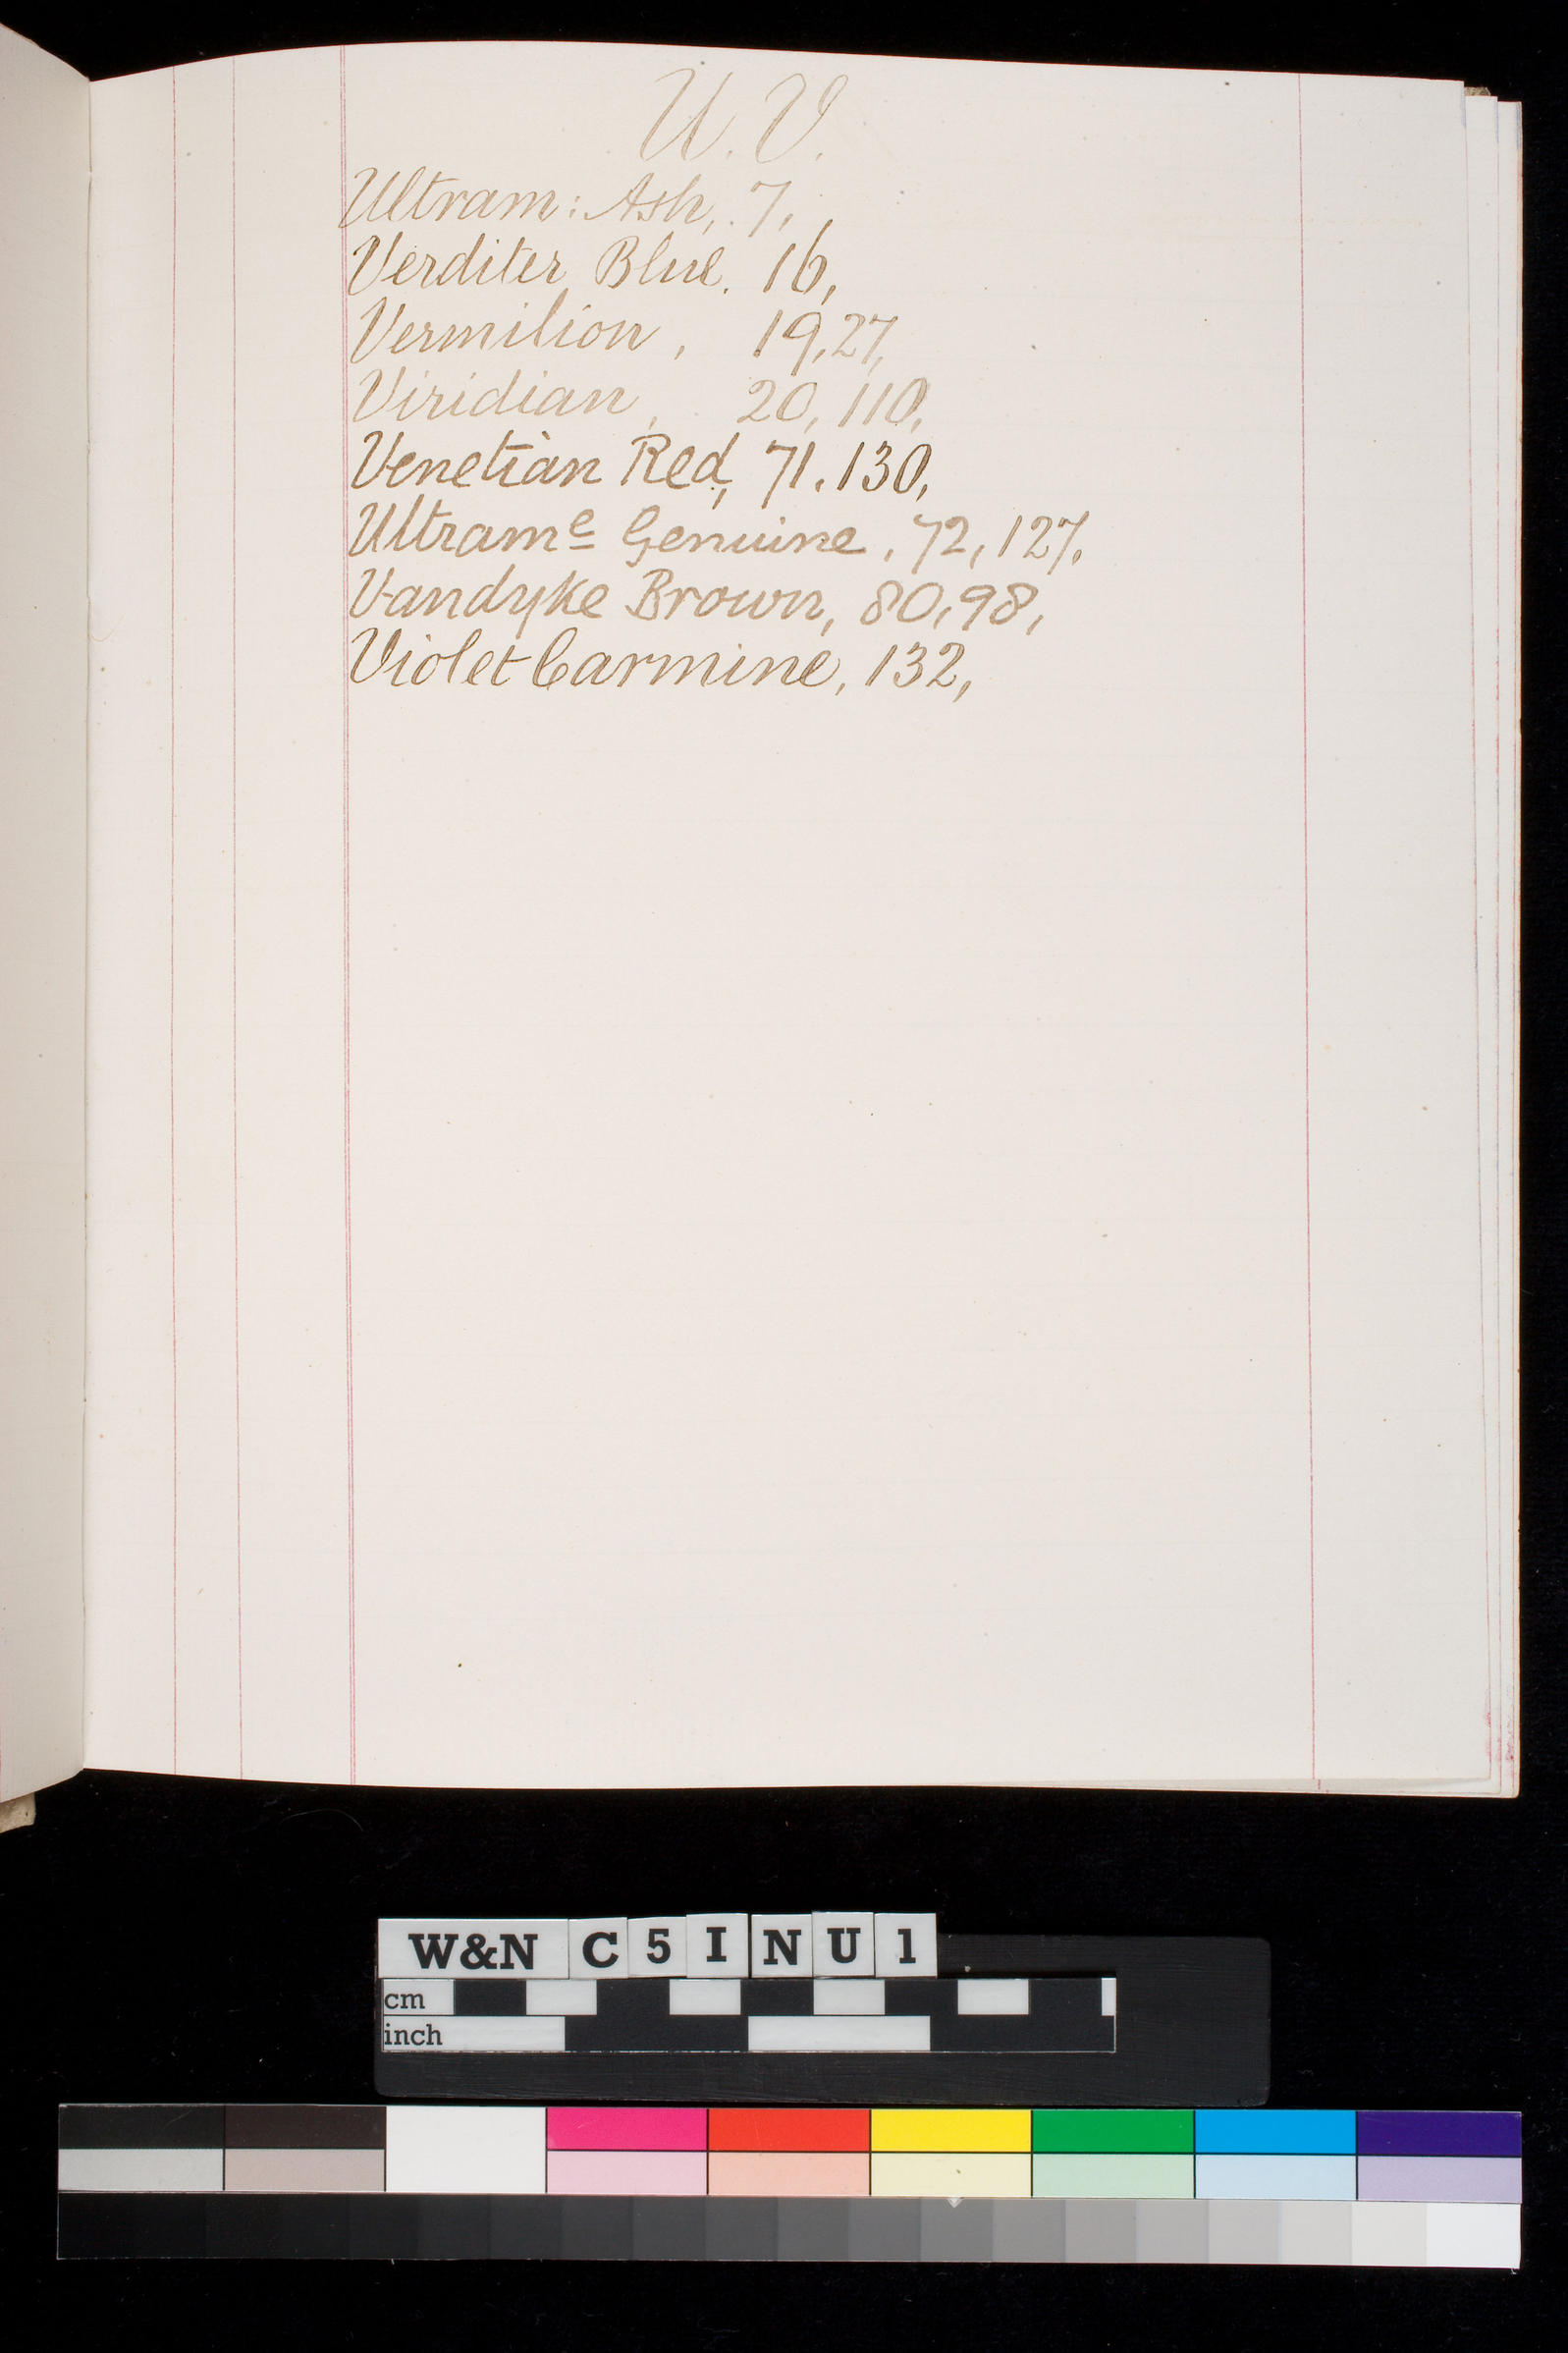 U. V.
Ultram: Ash, 7,
Verditer Blue. 16,
Vermilion, 19, 27,
Viridian, 20, 110,
Venetian Red, 71. 130,
Ultramᵉ Genuine, 72, 127.
Vandyke Brown, 80, 98,
Violet Carmine, 132,
W&N C 5 I N U 1
cm
inch